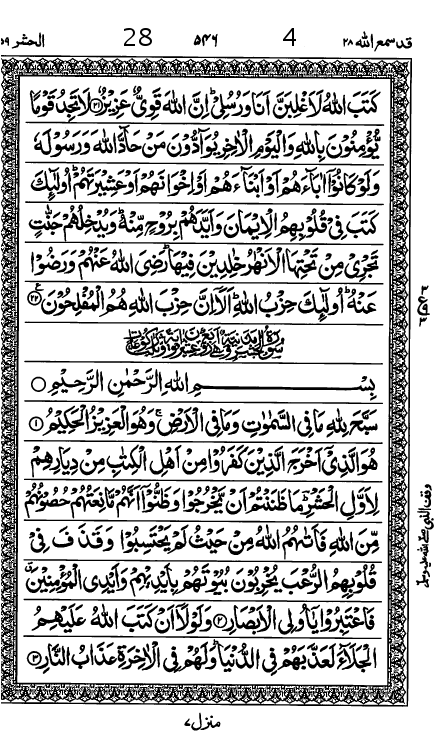 قد سمع الله ۲۸ 4 ۵۴۶ 28 الحشر ۵۹
كَتَبَ اللّٰهُ لَاَغْلِبَنَّ اَنَا وَرُسُلِيْ ؕ اِنَّ اللّٰهَ قَوِيٌّ عَزِيْزٌ ﴿۲۱﴾ لَا تَجِدُ قَوْمًا
يُّؤْمِنُوْنَ بِاللّٰهِ وَالْيَوْمِ الْاٰخِرِ يُوَآدُّوْنَ مَنْ حَآدَّ اللّٰهَ وَرَسُوْلَهٗ
وَلَوْ كَانُوْۤا اٰبَآءَهُمْ اَوْ اَبْنَآءَهُمْ اَوْ اِخْوَانَهُمْ اَوْ عَشِيْرَتَهُمْ ؕ اُولٰٓئِكَ
كَتَبَ فِيْ قُلُوْبِهِمُ الْاِيْمَانَ وَاَيَّدَهُمْ بِرُوْحٍ مِّنْهُ ؕ وَيُدْخِلُهُمْ جَنّٰتٍ
تَجْرِيْ مِنْ تَحْتِهَا الْاَنْهٰرُ خٰلِدِيْنَ فِيْهَا ؕ رَضِيَ اللّٰهُ عَنْهُمْ وَرَضُوْا
عَنْهُ ؕ اُولٰٓئِكَ حِزْبُ اللّٰهِ ؕ اَلَاۤ اِنَّ حِزْبَ اللّٰهِ هُمُ الْمُفْلِحُوْنَ ﴿۲۲﴾
بِسْمِ اللّٰهِ الرَّحْمٰنِ الرَّحِيْمِ ○
سَبَّحَ لِلّٰهِ مَا فِي السَّمٰوٰتِ وَمَا فِي الْاَرْضِ ۚ وَهُوَ الْعَزِيْزُ الْحَكِيْمُ ﴿۱﴾
هُوَ الَّذِيْۤ اَخْرَجَ الَّذِيْنَ كَفَرُوْا مِنْ اَهْلِ الْكِتٰبِ مِنْ دِيَارِهِمْ
لِاَوَّلِ الْحَشْرِ ؔؕ مَا ظَنَنْتُمْ اَنْ يَّخْرُجُوْا وَظَنُّوْۤا اَنَّهُمْ مَّانِعَتُهُمْ حُصُوْنُهُمْ
مِّنَ اللّٰهِ فَاَتٰىهُمُ اللّٰهُ مِنْ حَيْثُ لَمْ يَحْتَسِبُوْا وَقَذَفَ فِيْ
قُلُوْبِهِمُ الرُّعْبَ يُخْرِبُوْنَ بُيُوْتَهُمْ بِاَيْدِيْهِمْ وَاَيْدِي الْمُؤْمِنِيْنَ ۗ
فَاعْتَبِرُوْا يٰۤاُولِي الْاَبْصَارِ ﴿۲﴾ وَلَوْلَاۤ اَنْ كَتَبَ اللّٰهُ عَلَيْهِمُ
الْجَلَآءَ لَعَذَّبَهُمْ فِي الدُّنْيَا ؕ وَلَهُمْ فِي الْاٰخِرَةِ عَذَابُ النَّارِ ﴿۳﴾
منزل ۷